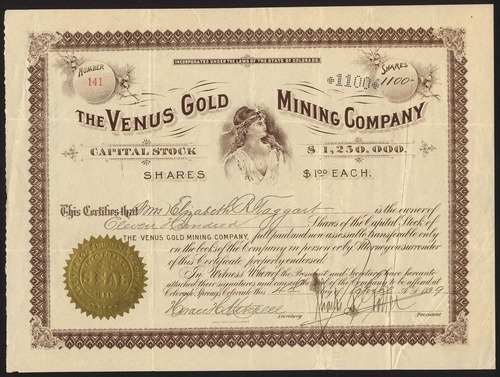 INCORPORATED UNDER THE LAWS OF THE STATE OF COLORADO.
NUMBER
141
SHARES
1100
1100
THE VENUS GOLD MINING COMPANY
CAPITAL STOCK $1,250,000.
SHARES $1.00 EACH.
This Certifies that Mrs. Elizabeth R. Taggart is the owner of
Eleven Hundred Shares of the Capital Stock of
THE VENUS GOLD MINING COMPANY, full paid and non assessable transferable only
on the books of the Company in person or by Attorney on surrender
of this Certificate properly endorsed.
In Witness Whereof the President and Secretary have hereunto
attached their signatures and caused the seal of the Company to be affixed at
Colorado Springs Colorado this
Secretary President